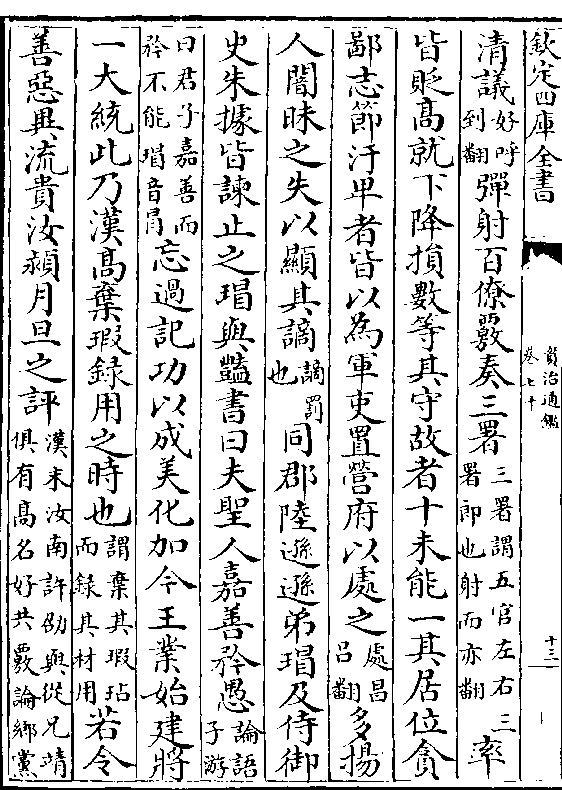 欽定四庫全書
資治通鑑
卷七十
十三
清議好呼到翻彈射百僚覈奏三署三署謂五官左右三署郎也射而亦翻率
皆貶髙就下降損數等其守故者十未能一其居位貪
鄙志節汙卑者皆以為軍吏置營府以處之處昌呂翻多揚
人闇昧之失以顯其謫謫罰也同郡陸遜遜弟瑁及侍御
史朱據皆諫止之瑁與豔書曰夫聖人嘉善矜愚論語子游
曰君子嘉善而矜不能瑁音冐忘過記功以成美化加今王業始建將
一大統此乃漢髙棄瑕録用之時也謂棄其瑕玷而録其材用若令
善惡異流貴汝潁月旦之評漢末汝南許劭與從兄靖俱有髙名好共覈論鄉黨